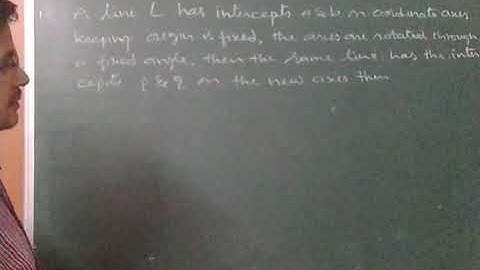 A line L has intercepts a & b on coordinate axes
keeping origin is fixed, the axes are rotated through
a fixed angle, then the same line has the inter
cepts p & q on the new axes then